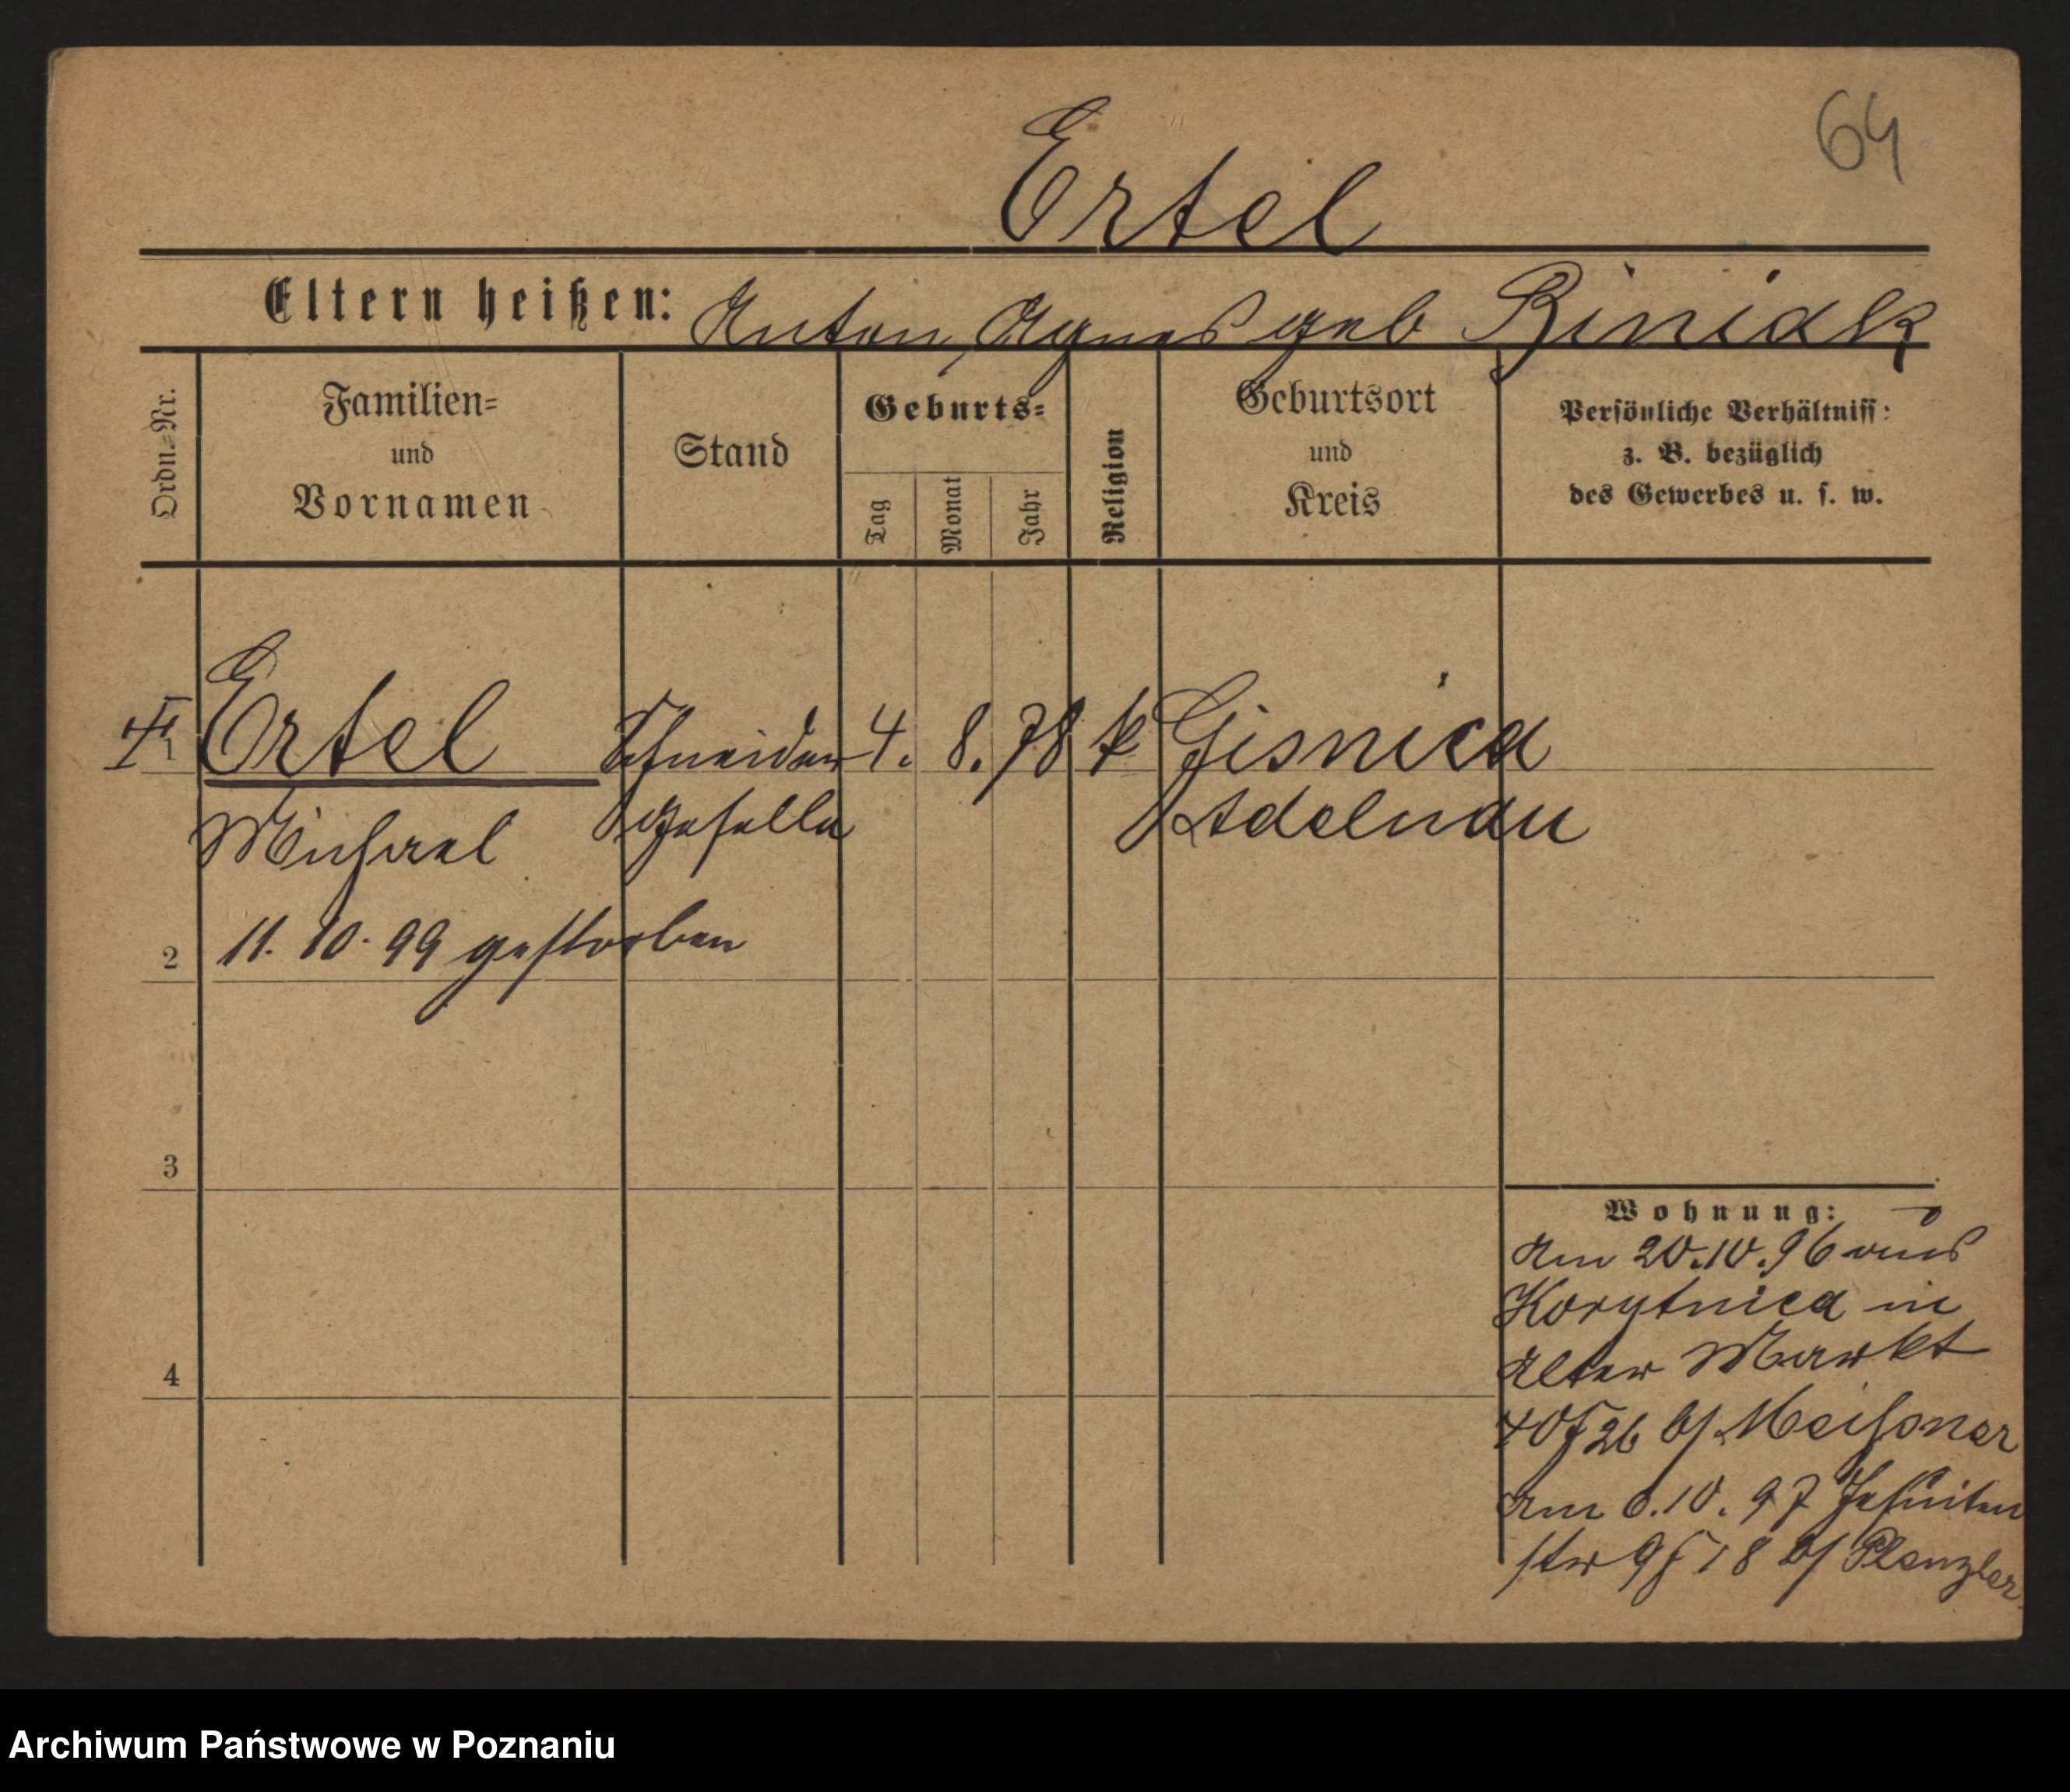 64
Ertel
Eltern heißen: Anton, Agnes geb Biniak
Ordn.-Nr.
Familien- und Vornamen
Stand
Geburts-
Tag
Monat
Jahr
Religion
Geburtsort und Kreis
Persönliche Verhältniss:
z. B. bezüglich
des Gewerbes u. s. w.
1 Ertel Schneider 4. 8. 78 k Gisnica
Michael geselle Adelnau
2 11. 10. 99 gestorben
3
4
Wohnung:
Am 20.10.96 aus
Korytnica in
Alter Markt
40 26 b/ Meißner
Am 6.10.97 Jesuiten
str 9 18 b/ Plenzler
Archiwum Państwowe w Poznaniu